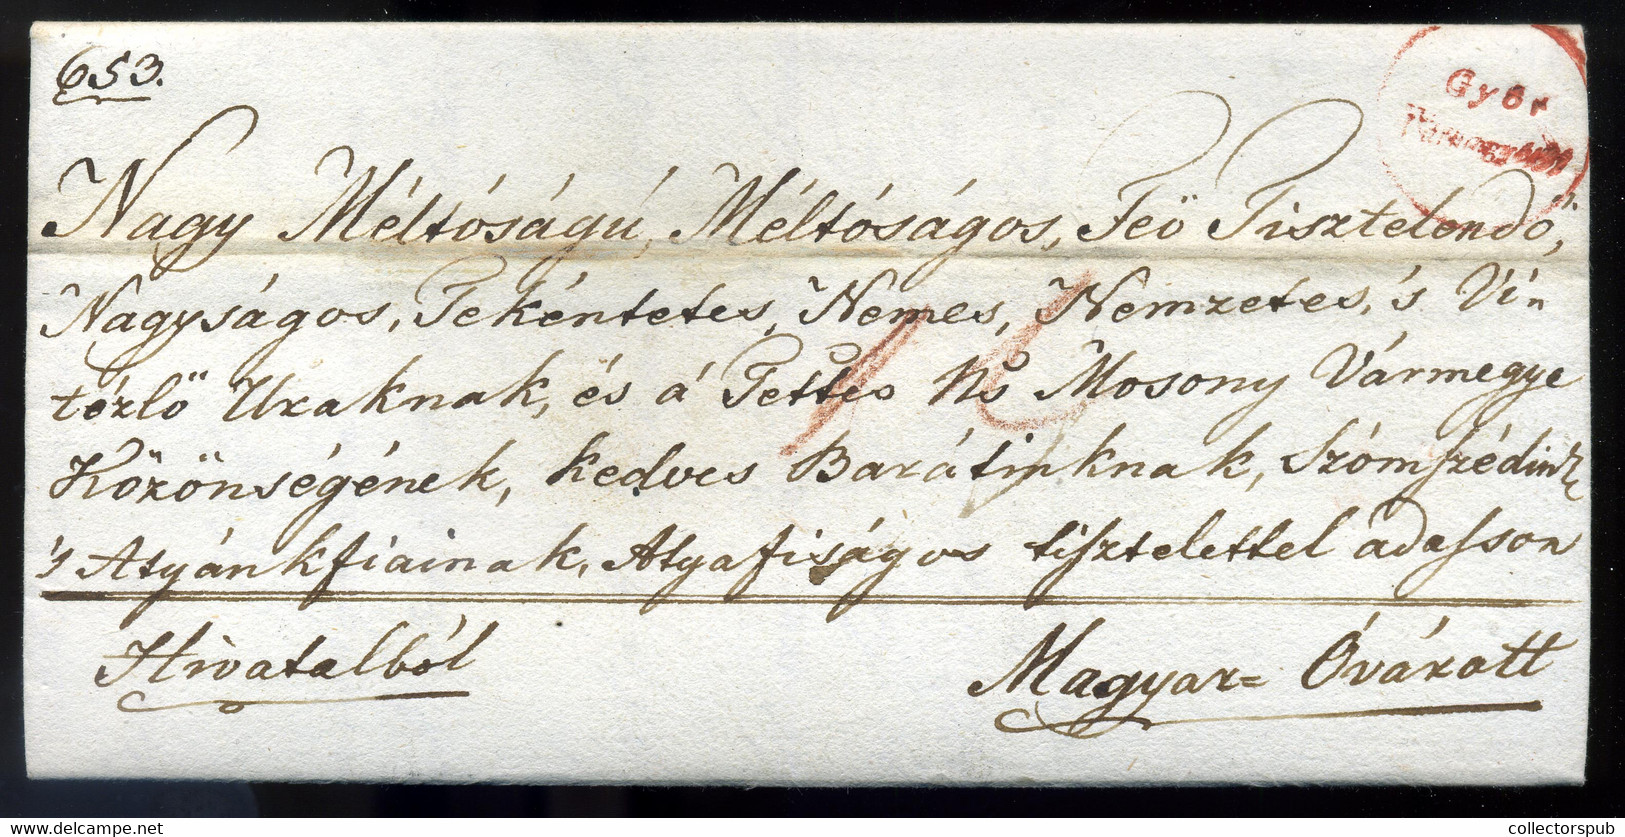 653.
Győr
Nagy Méltóságú, Méltóságos, Feö Tisztelendő,
Nagyságos, Tekéntetes, Nemes, Nemzetes, 's Vi-
tézlő Uraknak, és á Tettes Ns Mosony Vármegye
Közönségének, kedves Barátinknak, Szómszédink
's Atyánkfiainak, Atyafiságos tisztelettel adasson
Hivatalból
Magyar= Óvárott
collectorspub